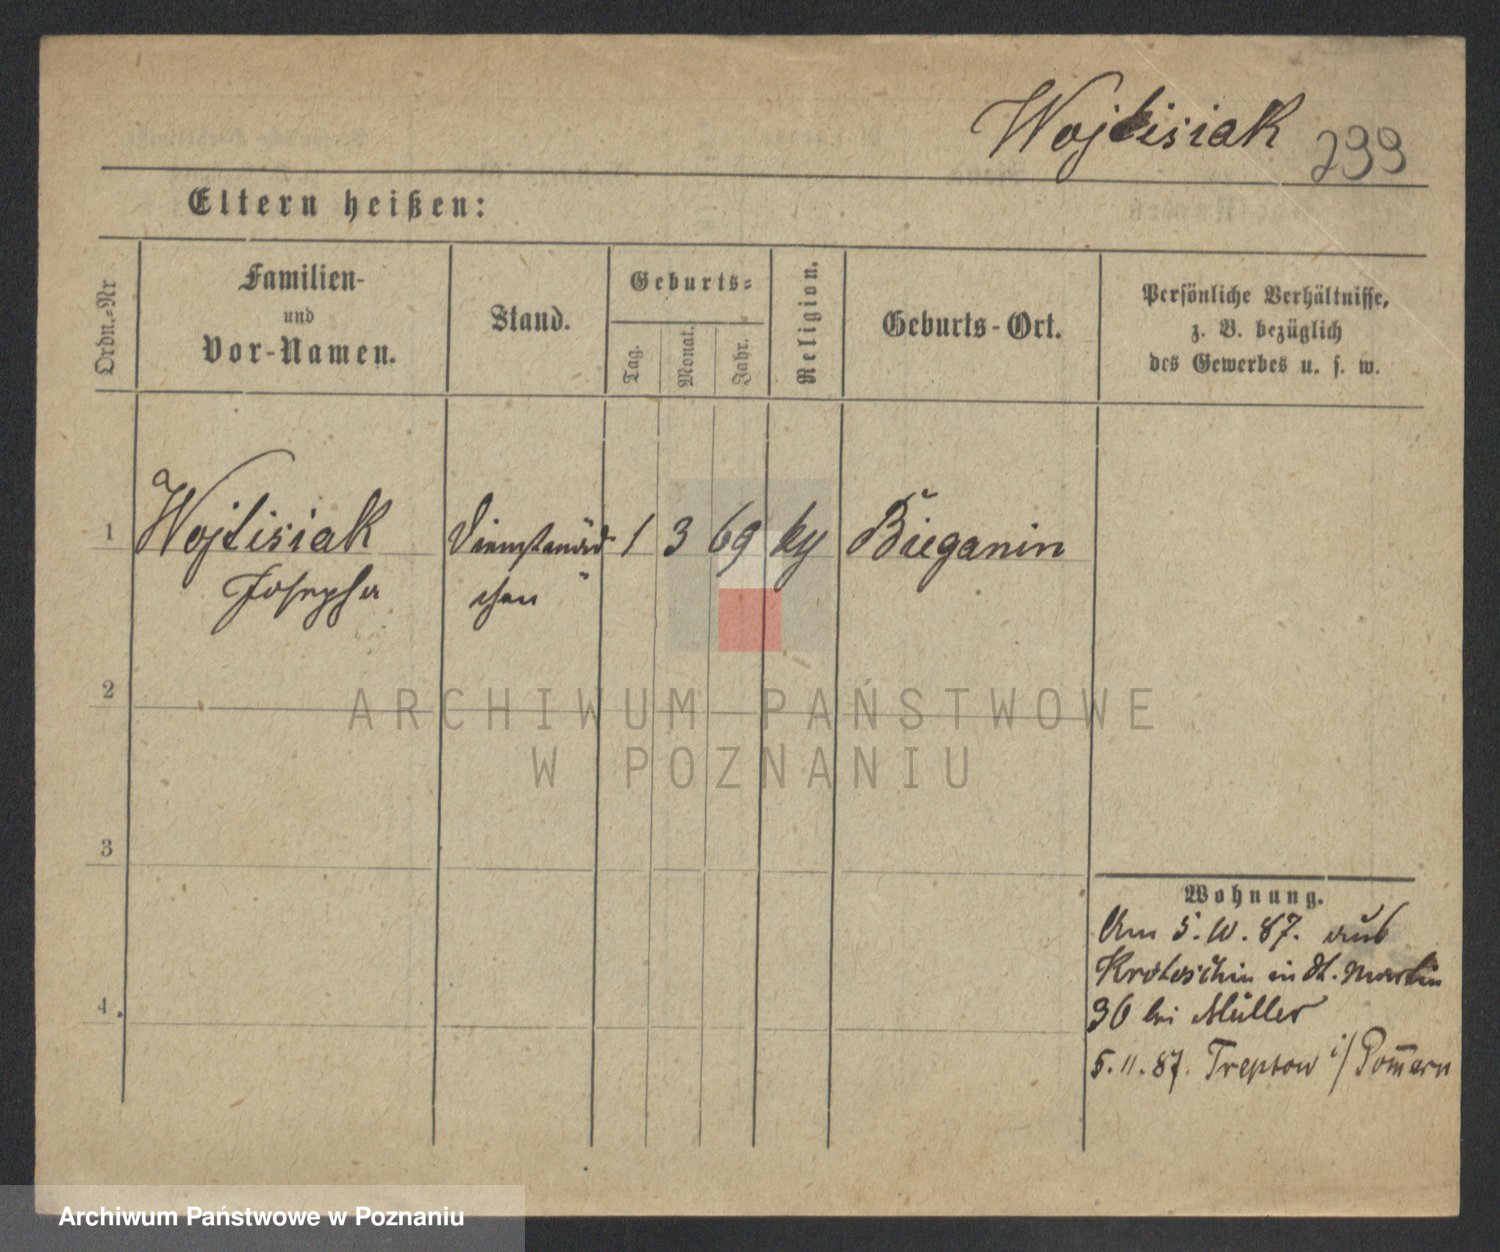 Wojtisiak 299
Eltern heißen:
Ordn.-Nr
Familien-
und
Vor-Namen.
Stand.
Geburts-
Tag.
Monat.
Jahr.
Religion.
Geburts-Ort.
Persönliche Verhältnisse,
z. B. bezüglich
des Gewerbes u. s. w.
1 Wojtisiak Dienstmäd- 1 3 69 ky Bieganin
Josepha chen
2
ARCHIWUM PAŃSTWOWE
W POZNANIU
3
Wohnung.
Am 5. 10. 87. aus
Krotoschin in St. Martin
36 bei Müller
4.
5. 11. 87. Treptow i/ Pom̅ern
Archiwum Państwowe w Poznaniu